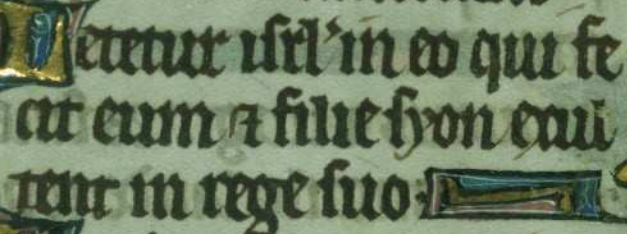 Letetur isrl' in eo qui fe
cit eum ⁊ filie syon exul
tent in rege suo.